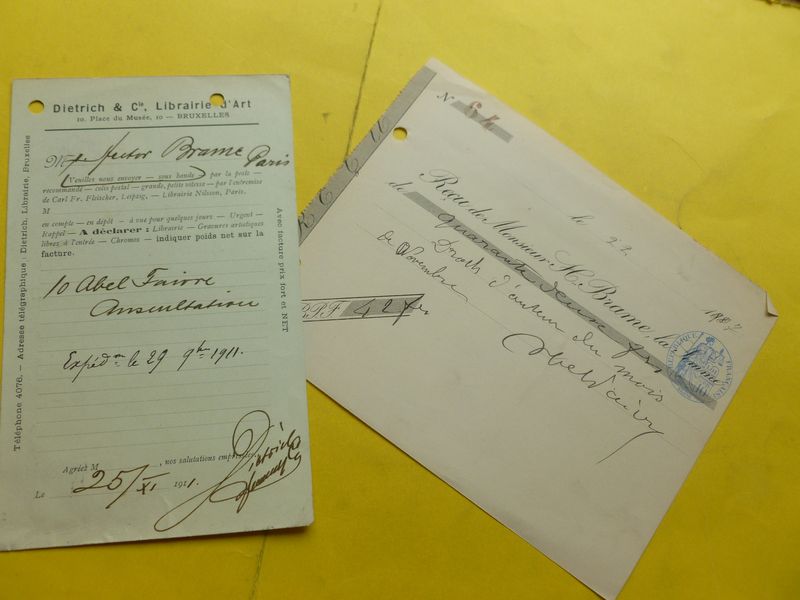 Dietrich & Cie, Librairie d'Art
10, Place du Musée, 10 — BRUXELLES
M Hector Brame Paris
(Veuillez nous envoyer — sous bande) par la poste —
recommandé — colis postal — grande, petite vitesse — par l'entremise
de Carl Fr. Fleischer, Leipzig, — Librairie Nilsson, Paris.
M
en compte — en dépôt — à vue pour quelques jours — Urgent —
Rappel — A déclarer : Librairie — Gravures artistiques
libres à l'entrée — Chromos — indiquer poids net sur la
facture.
10 Abel Faivre
Auscultation
Expédon le 29 9bre 1911.
Agréez M , nos salutations empressées,
Le 25/XI 1911.
Dietrich
Téléphone 4076. — Adresse télégraphique : Dietrich, Librairie, Bruxelles
Avec facture prix fort et NET
REÇU
N° 64
le 22 1887
Reçu de Monsieur H. Brame, la somme
de quarante deux frs
Droits d'auteur du mois
de Novembre
B.P.F. 42 frs
Abel Faivre
RÉPUBLIQUE FRANÇAISE